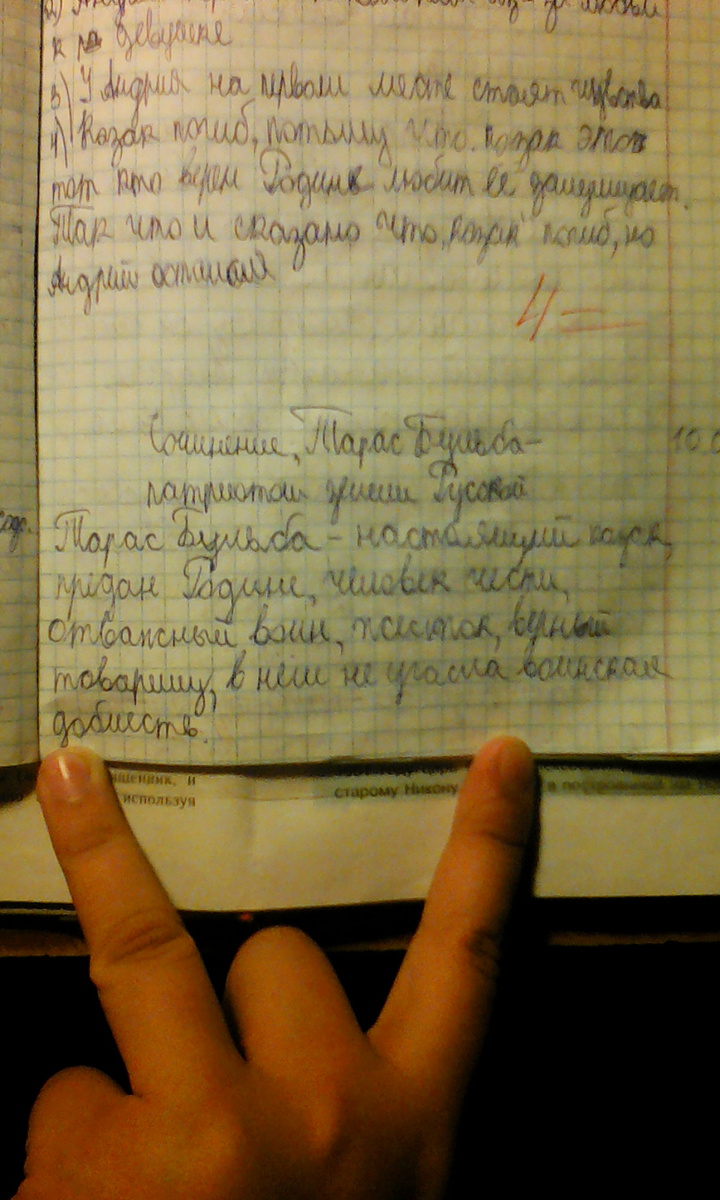 к девушке
3) У Андрия на первом месте стоят чувства
4) Козак погиб, потому что козак этот
тот кто верен Родине любит её защищает.
Так что и сказано что "козак" погиб, но
Андрий остался
4=
Сочинение "Тарас Бульба-
патриот земли Русской
10.0
Тарас Бульба - настоящий козак,
предан Родине, человек чести,
отважный воин, жесток, верный
товарищ, в нём не угасла воинская
доблесть.
старому Никону
используя